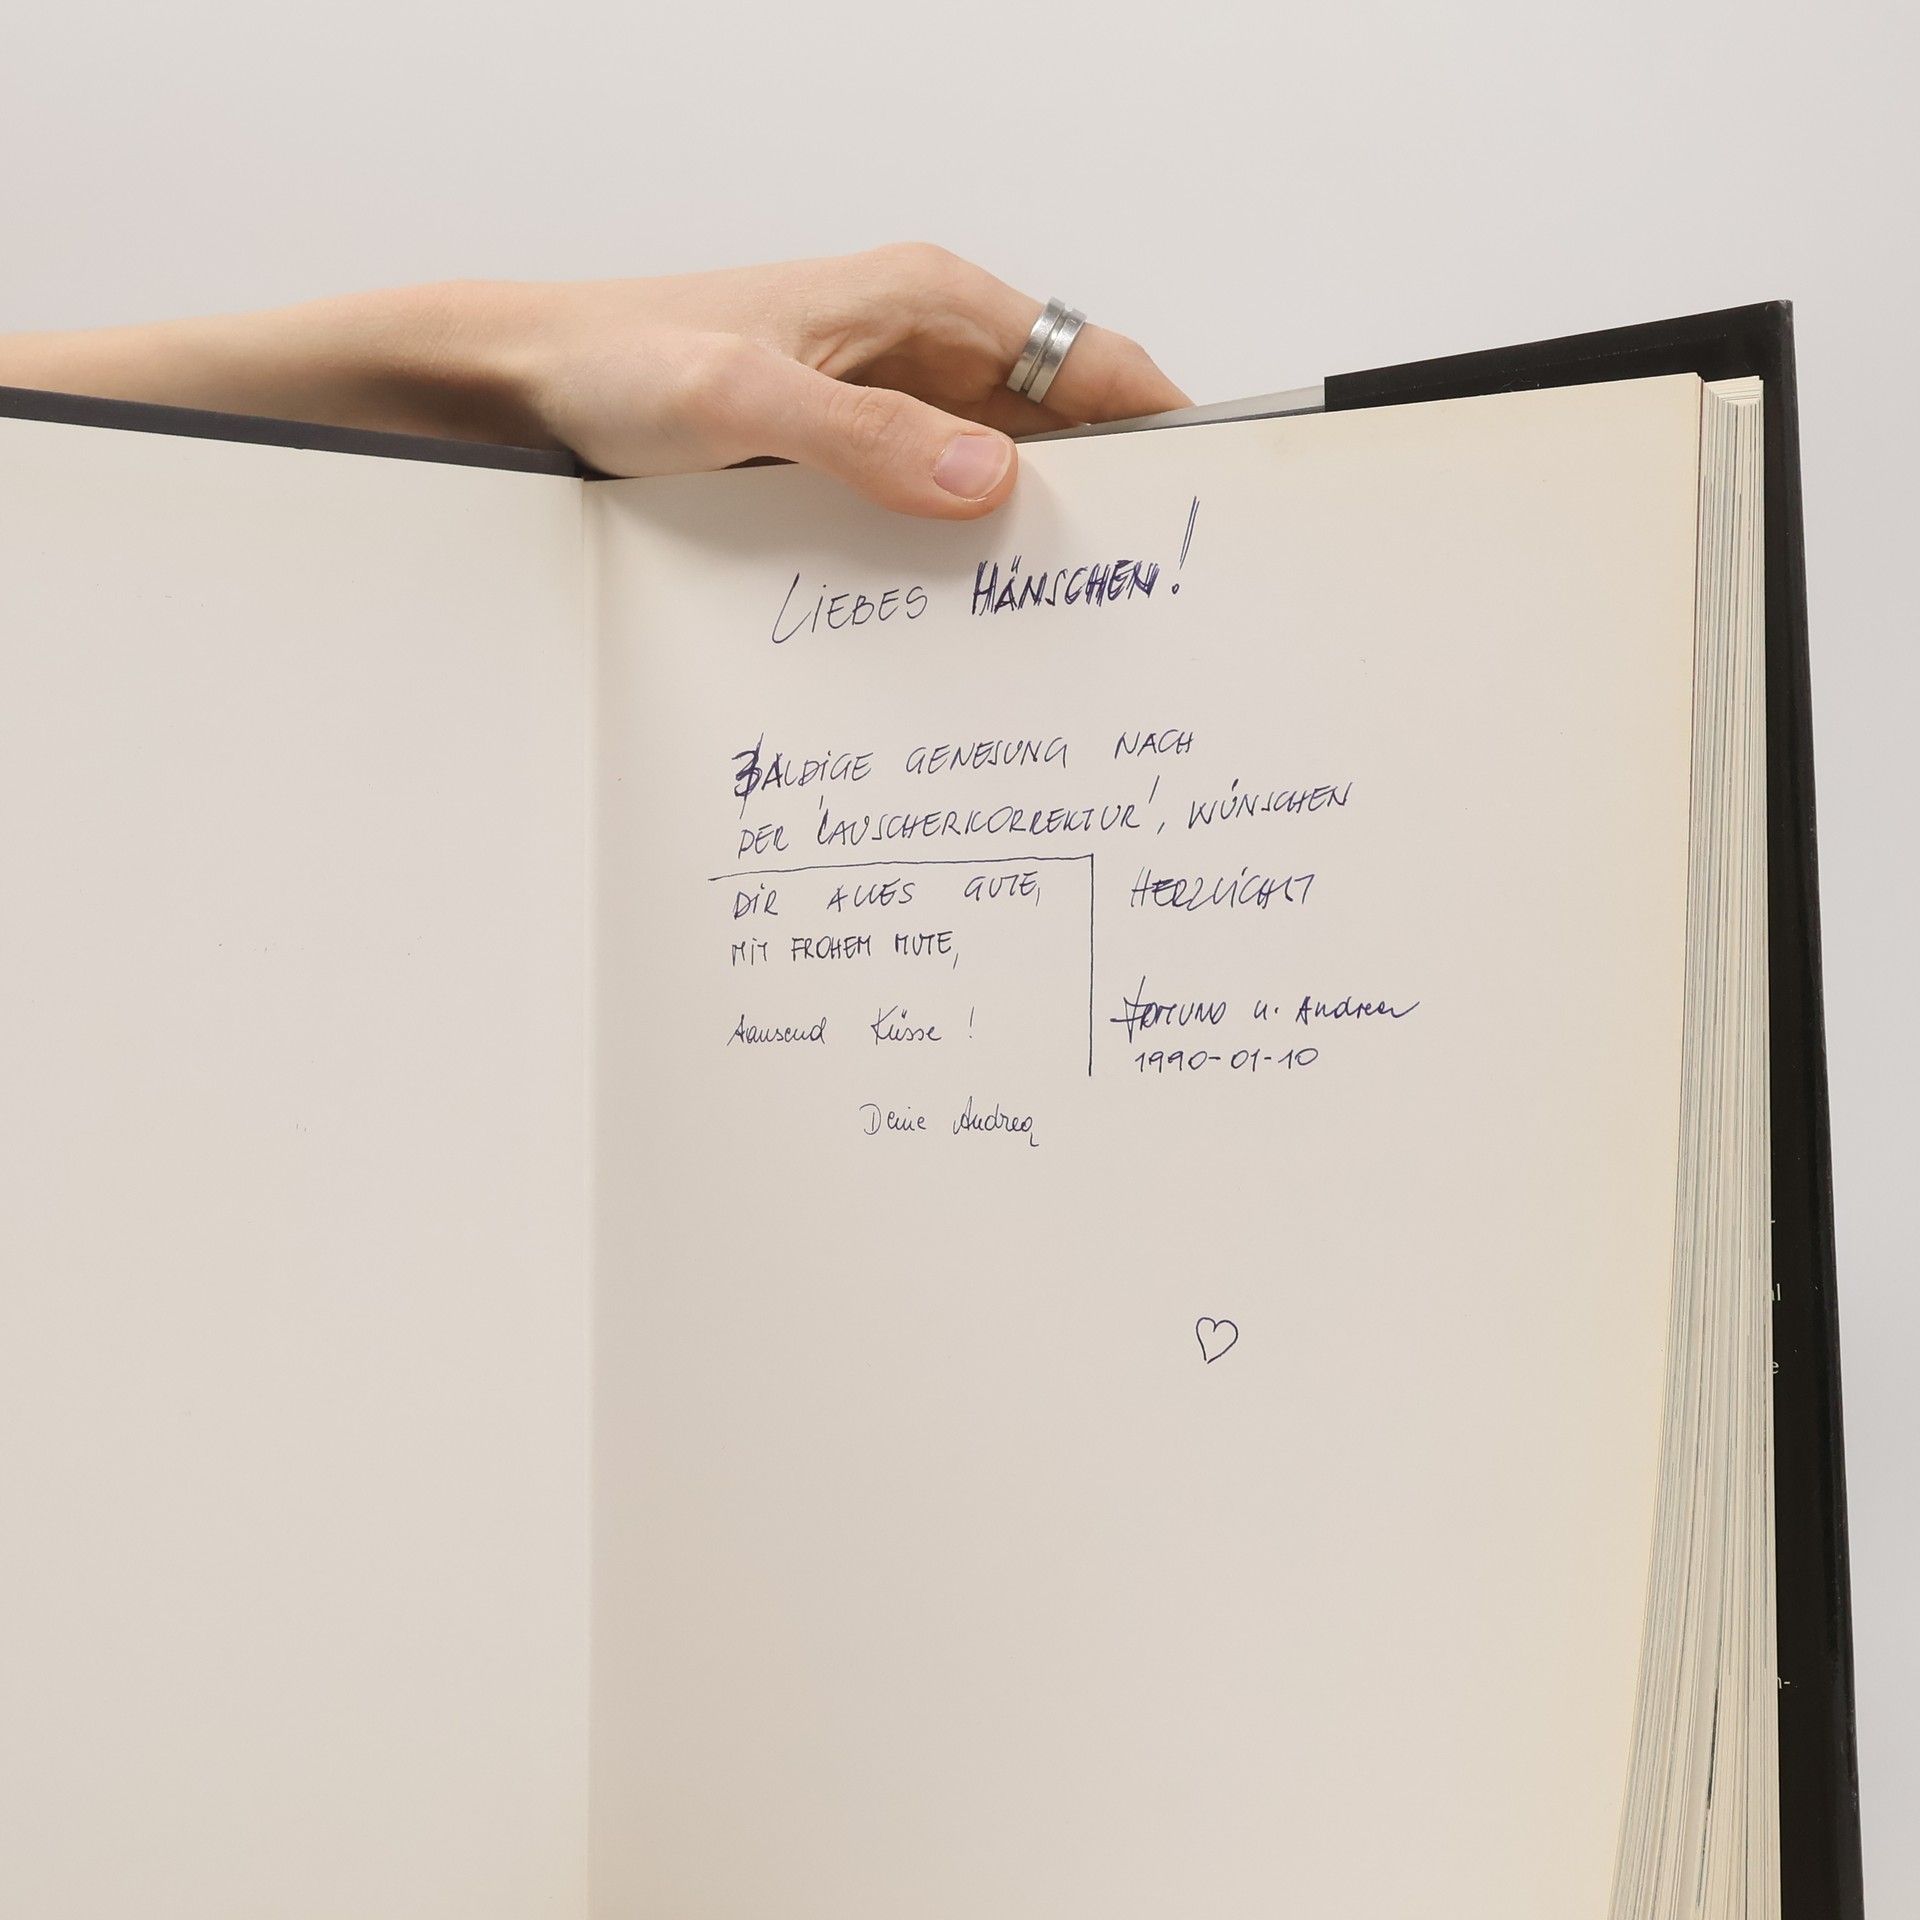 LiEBES HÄNSCHEN!
BALDiGE GENESUNG NACH
DER 'LAUSCHERKORREKTUR', WÜNSCHEN
DiR ALLES GUTE,
MiT FROHEM MUTE,
tausend Küsse!
Deine Andrea
HERZLiCHST
u. Andrea
1990-01-10